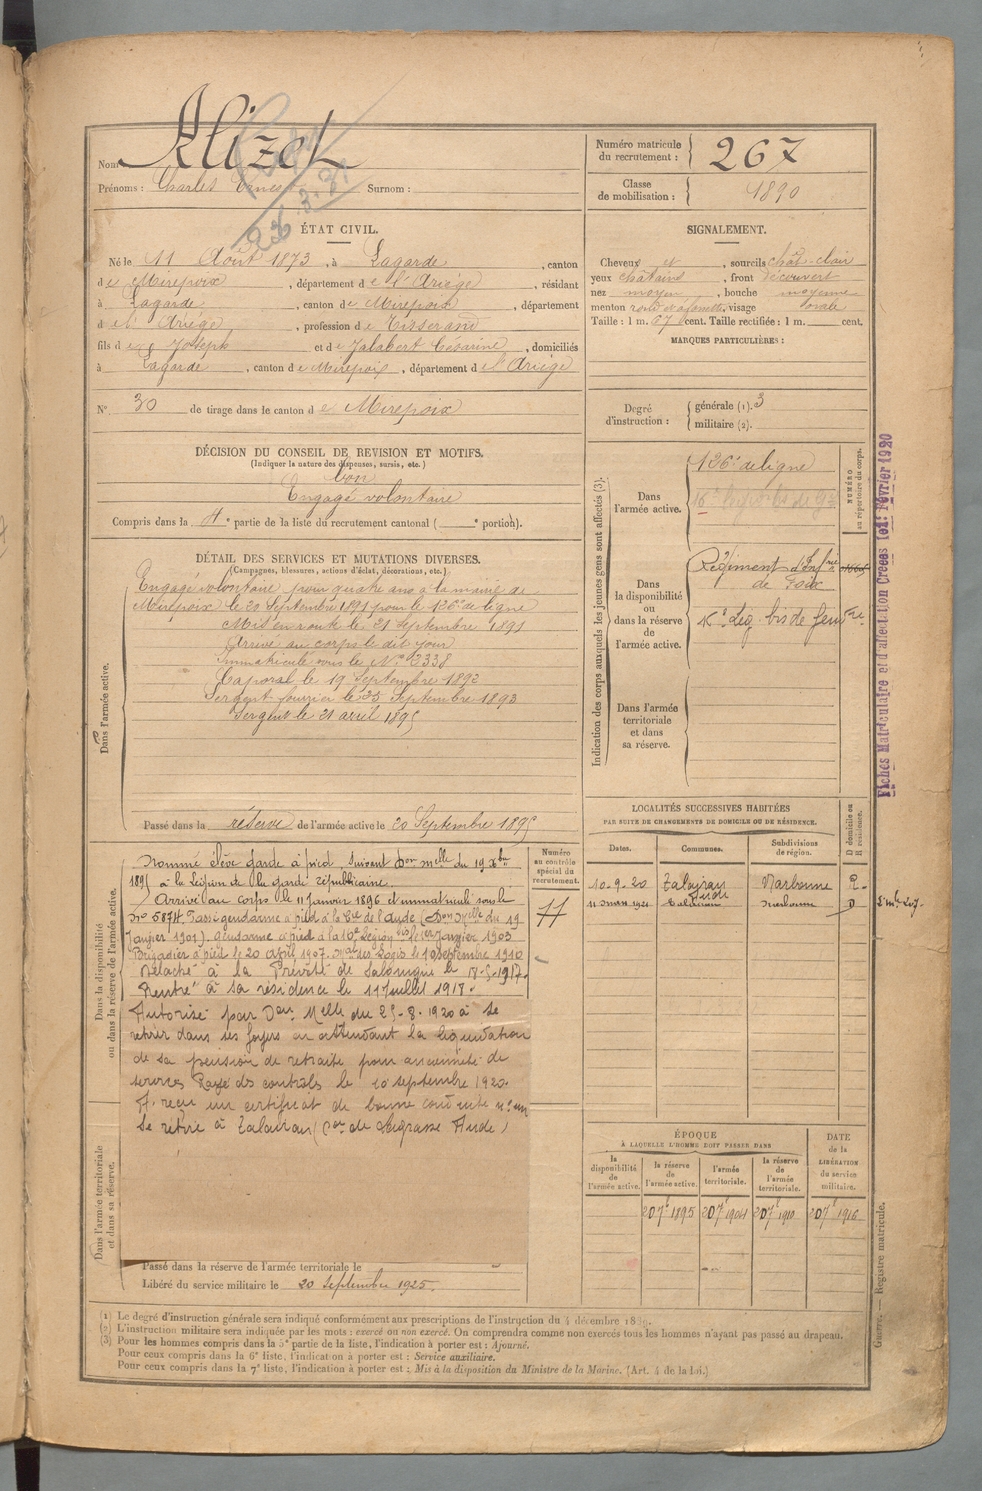 Nom Alizet
Prénoms : Charles Ernest Surnom :
Numéro matricule du recrutement : 267
Classe de mobilisation : 1890
26.3.31
ÉTAT CIVIL.
Né le 11 Août 1873, à Lagarde, canton
de Mirepoix, département de l'Ariège, résidant
à Lagarde, canton de Mirepoix, département
de l'Ariège, profession de Tisserand
fils de Joseph et de Jalabert Césarine, domiciliés
à Lagarde, canton de Mirepoix, département de l'Ariège
N° 30 de tirage dans le canton de Mirepoix
SIGNALEMENT.
Cheveux et, sourcils chât-clair
yeux châtains, front découvert
nez moyen, bouche moyenne
menton rond et à fossette, visage ovale
Taille : 1 m. 67 cent. Taille rectifiée : 1 m. cent.
MARQUES PARTICULIÈRES :
Degré d'instruction : générale (1). 3
militaire (2).
DÉCISION DU CONSEIL DE REVISION ET MOTIFS.
(Indiquer la nature des dispenses, sursis, etc.)
bon
Engagé volontaire
Compris dans la 4e partie de la liste du recrutement cantonal ( e portion).
DÉTAIL DES SERVICES ET MUTATIONS DIVERSES.
(Campagnes, blessures, actions d'éclat, décorations, etc.)
Dans l'armée active.
Engagé volontaire pour quatre ans à la mairie de
Mirepoix le 20 Septembre 1891 pour le 126e de ligne
Mis en route le 21 Septembre 1891
Arrivé au corps le dit jour
Immatriculé sous le N° 2338
Caporal le 19 Septembre 1892
Sergent fourrier le 25 Septembre 1893
Sergent le 21 avril 1895
Passé dans la réserve de l'armée active le 20 Septembre 1895
Dans la disponibilité ou dans la réserve de l'armée active.
Nommé élève garde à pied, suivant Don Mlle du 19 Xbre
1895 à la Légion de la garde républicaine
Arrivé au corps le 11 Janvier 1896 et immatriculé sous le
No 5874 Passé gendarme à pied à la Cie de l'Aude (Don Mlle du 19
Janvier 1901). Gendarme à pied à la 16e Légion bis le 1er Janvier 1903
Brigadier à pied le 20 avril 1907. Mal des Logis le 10 septembre 1910
Détaché à la Prévôté de Salonique le 18-5-1917.
Rentré à sa résidence le 11 Juillet 1918.
Autorisé par Don Melle du 25-8-1920 à se
retirer dans ses foyers en attendant la liquidation
de sa pension de retraite pour ancienneté de
services Rayé des contrôles le 10 septembre 1920.
A reçu un certificat de bonne conduite
Se retire à Talairan (Con de Lagrasse Aude)
Dans l'armée territoriale et dans sa réserve.
Passé dans la réserve de l'armée territoriale le
Libéré du service militaire le 20 septembre 1925.
Numéro au contrôle spécial du recrutement.
11
Indication des corps auxquels les jeunes gens sont affectés (3).
Dans l'armée active.
126e de ligne
NUMÉRO au répertoire du corps.
Dans la disponibilité ou dans la réserve de l'armée active.
Régiment d'Infrie
de Foix
16e Lég. bis de Gendrie
Dans l'armée territoriale et dans sa réserve.
LOCALITÉS SUCCESSIVES HABITÉES
PAR SUITE DE CHANGEMENTS DE DOMICILE OU DE RÉSIDENCE.
Dates. Communes. Subdivisions de région. D domicile ou R résidence.
10-9-20 Talairan Aude Narbonne R
11 1921 Talairan Narbonne D
ÉPOQUE
À LAQUELLE L'HOMME DOIT PASSER DANS
la disponibilité de l'armée active. la réserve de l'armée active. l'armée territoriale. la réserve de l'armée territoriale.
DATE de la LIBÉRATION du service militaire.
20 7e 1895 20 7e 1904 20 7e 1910 20 7e 1916
Fiches Matriculaire et d'affectation Créées Loi: Février 1920
Guerre. — Registre matricule.
(1) Le degré d'instruction générale sera indiqué conformément aux prescriptions de l'instruction du 4 décembre 1889.
(2) L'instruction militaire sera indiquée par les mots : exercé ou non exercé. On comprendra comme non exercés tous les hommes n'ayant pas passé au drapeau.
(3) Pour les hommes compris dans la 5e partie de la liste, l'indication à porter est : Ajourné.
Pour ceux compris dans la 6e liste, l'indication à porter est : Service auxiliaire.
Pour ceux compris dans la 7e liste, l'indication à porter est : Mis à la disposition du Ministre de la Marine. (Art. 4 de la Loi.)